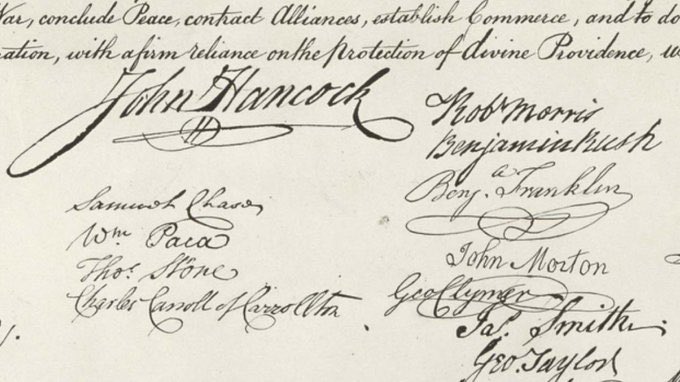 War, conclude Peace, contract Alliances, establish Commerce, and to do
ration, with a firm reliance on the Protection of divine Providence, w
John Hancock
Samuel Chase
Wm. Paca
Thos. Stone
Charles Carroll of Carrollton
Robt Morris
Benjamin Rush
Benja. Franklin
John Morton
Geo Clymer
Jas. Smith.
Geo. Taylor